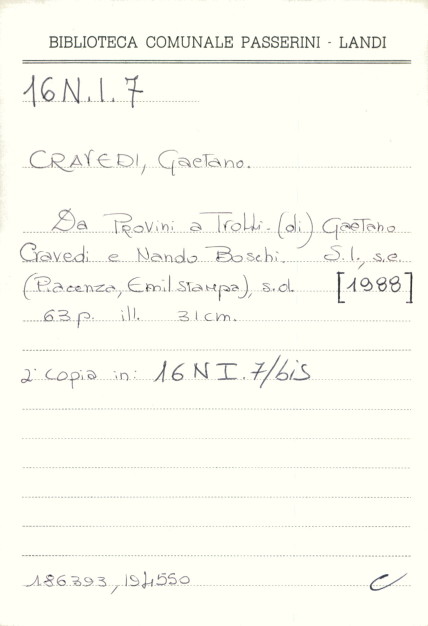 BIBLIOTECA COMUNALE PASSERINI - LANDI
16 N.I.7
CRAVEDI, Gaetano.
Da Provini a Trolli. (di) Gaetano
Cravedi e Nando Boschi. S.l., s.e.
(Piacenza, Emilstampa), s.d. [1988]
63 p. ill. 31 cm.
2ª copia in: 16 N I.7/bis
186393, 194550
C